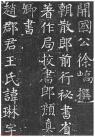 開國公徐嶠撰
朝散郎前行秘書省
著作局校書郎顏真
卿書
趙郡君王氏諱琳字